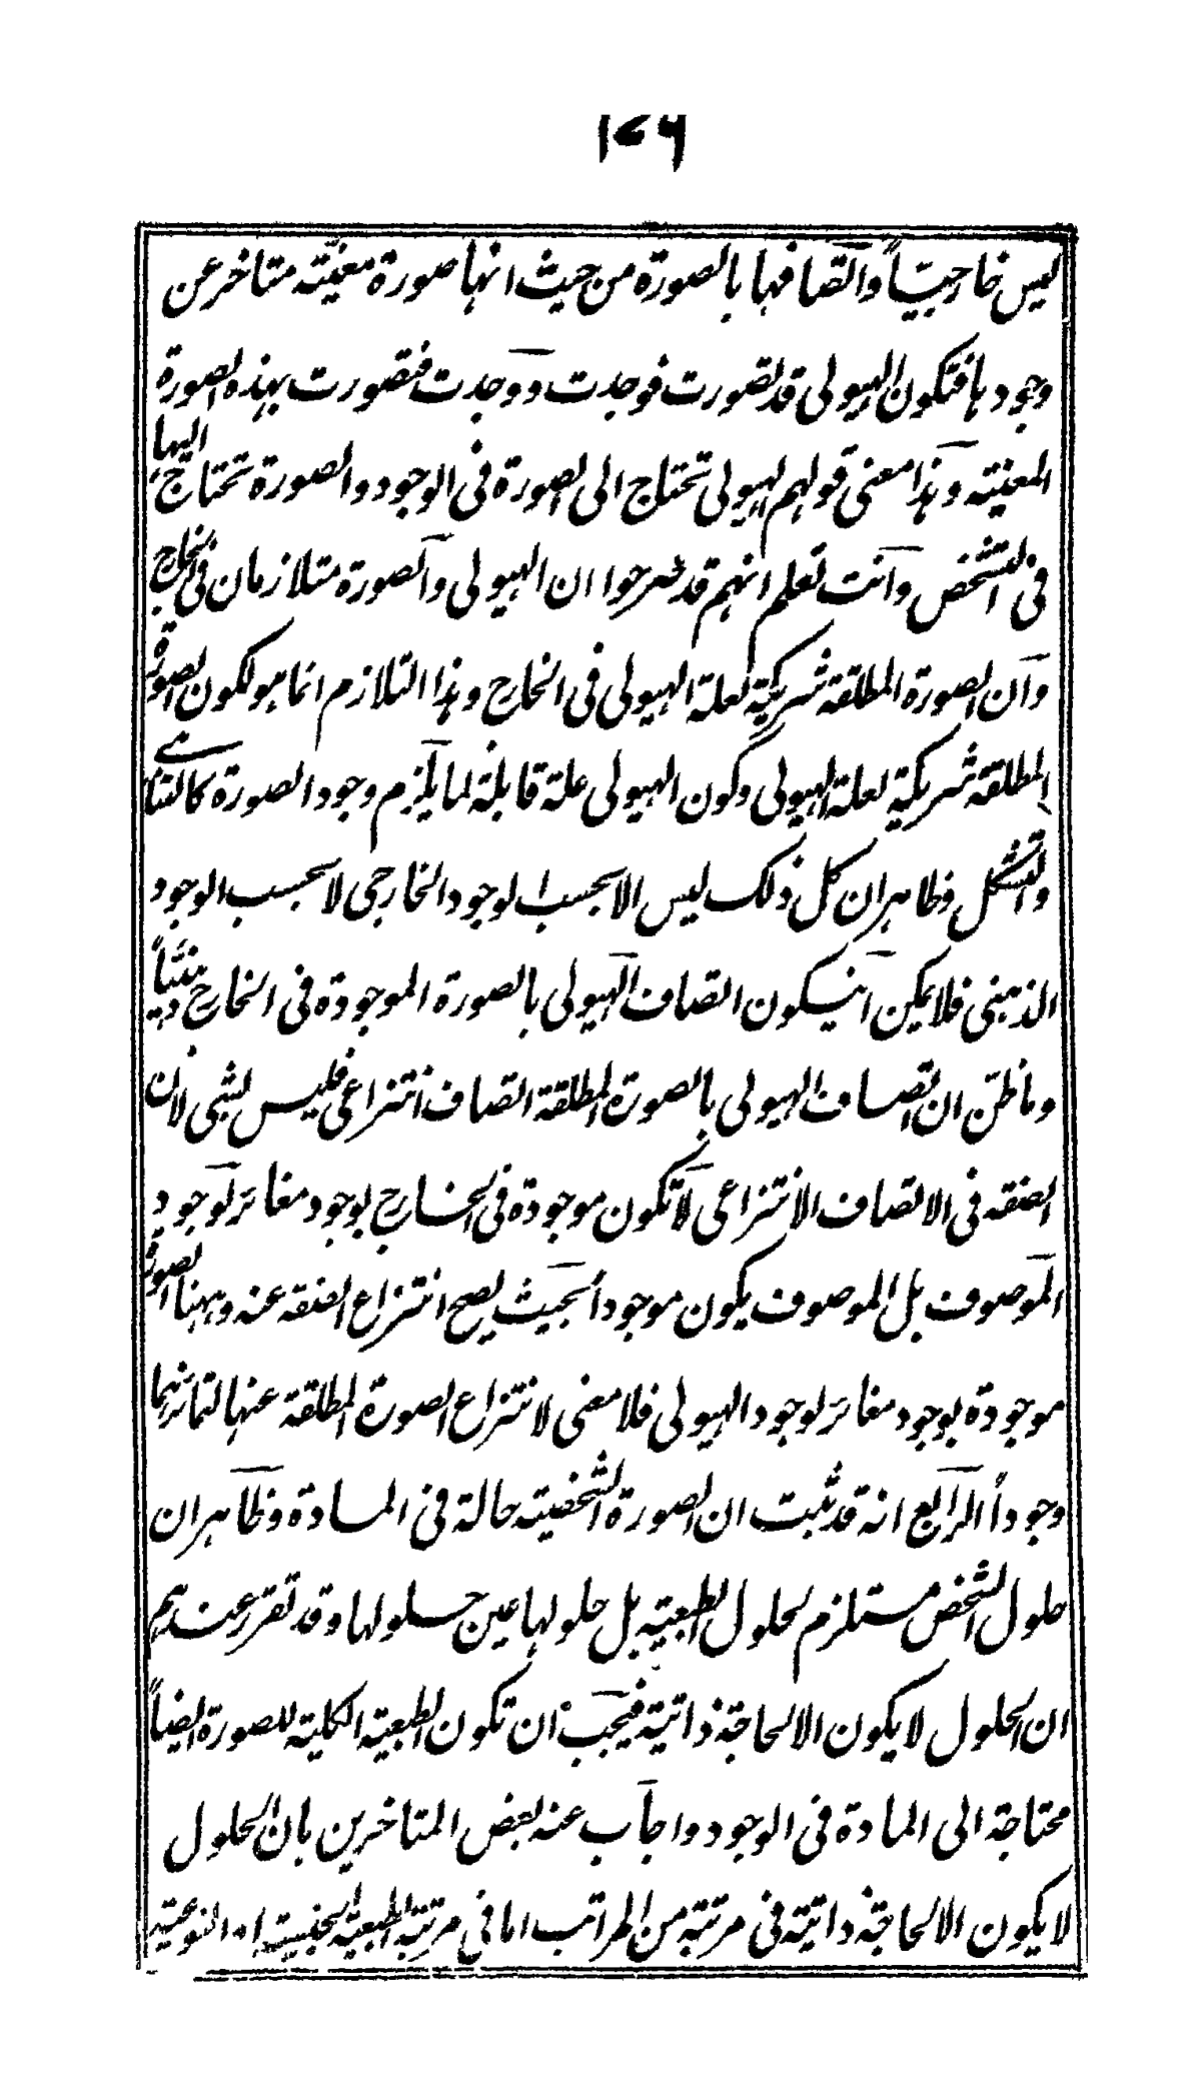 ۱۷۶
ليس خارجيّاً واتصافها بالصورة من حيث انها صورة معينّة متاخر عن
وجودها فتكون الهيولى قد تصورت فوجدت ووجدت فتصورت بهذه الصورة
المعينة وهذا معنى قولهم الهيولى تحتاج الى الصورة فى الوجود والصورة تحتاج اليها
فى التشخص وانت تعلم انهم قد صرحوا ان الهيولى والصورة متلازمان فى الخارج
وان الصورة المطلقة شريكة لعلة الهيولى فى الخارج وهذا التلازم انما هو لكون الصورة
المطلقة شريكة لعلة الهيولى وكون الهيولى علة قابلة لما يلزم وجود الصورة كالتناهى
والتشكل وظاهر ان كل ذلك ليس الا بحسب الوجود الخارجى لا بحسب الوجود
الذهنى فلا يمكن ان يكون اتصاف الهيولى بالصورة الموجودة فى الخارج ذهنياً
وما ظن ان اتصاف الهيولى بالصورة المطلقة اتصاف انتزاعى فليس بشئ لان
الصفة فى الاتصاف الانتزاعى لا تكون موجودة فى الخارج بوجود مغائر لوجود
الموصوف بل الموصوف يكون موجوداً بحيث يصح انتزاع الصفة عنه وههنا الصورة
موجودة بوجود مغائر لوجود الهيولى فلا معنى لانتزاع الصورة المطلقة عنها لتمائزهما
وجوداً الرابع انه قد ثبت ان الصورة الشخصية حالة فى المادة وظاهر ان
حلول الشخص مستلزم لحلول الطبعية بل حلولها عين حلولها وقد تقرر عندهم
ان الحلول لا يكون الا لحاجة ذاتية فيجب ان تكون الطبعية الكلية للصورة ايضاً
محتاجة الى المادة فى الوجود واجاب عنه بعض المتاخرين بان الحلول
لا يكون الا لحاجة ذاتية فى مرتبة من المراتب اما فى مرتبة الطبعية الجنسية او النوعية